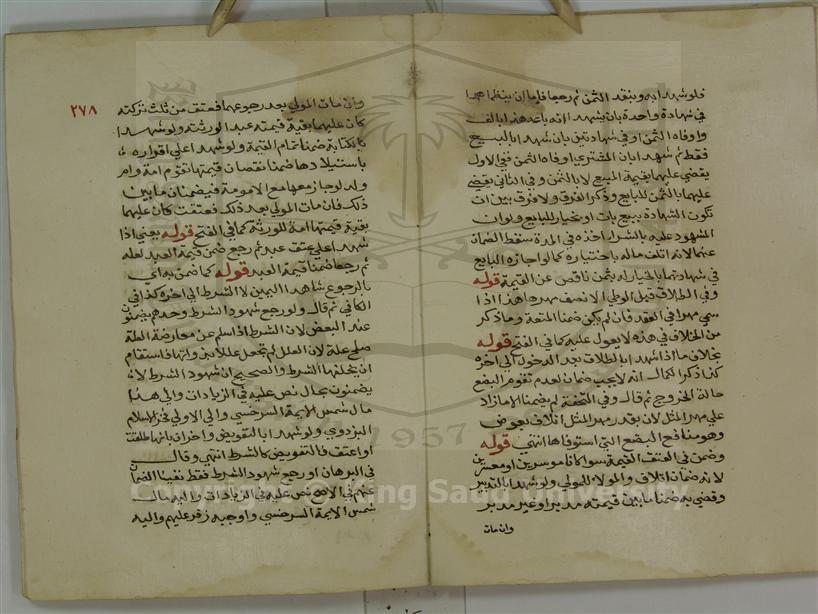 فلو شهدا به وبنقد الثمن ثم رجعا فاما ان ينظماهما
في شهادة واحدة بان يشهدا انه باعه هذا بالف
واوفاه الثمن او في شهادتين بان شهدا بالبيع
فقط ثم شهدا بان المشتري اوفاه الثمن ففي الاول
يقضي عليهما بقيمة المبيع لا بالثمن وفي الثاني يقضي
عليهما بالثمن للبايع وذكر الفرق ولا فرق بين ان
تكون الشهادة ببيع بات او بخيار للبايع ولو ان
المشهود عليه بالشراء اخذه في المدة سقط الضمان
عنهما لانه اتلف ماله باختياره كما لو اجازه البايع
في شهادتهما بالخيار له بثمن ناقص عن القيمة قوله
وفي الطلاق قبل الوطي الا نصف مهرها هذا اذا
سمي مهرا في العقد فان لم يكن ضمنا المتعة وما ذكر
من الخلاف في هذه لا يعول عليه كما في الفتح قوله
بخلاف ما اذا شهدا بالطلاق بعد الدخول الى اخره
كذا ذكر الكمال انه لا يجب ضمان لعدم تقوم البضع
حالة الخروج ثم قال وفي التحفة لم يضمنا الا ما زاد
علي مهر المثل لان بقدر مهر المثل اتلاف بعوض
وهو منافع البضع التي استوفاها انتهي قوله
وضمن في العتق القيمة سوا كانا موسرين او معسرين
لانه ضمان اتلاف والولاء للمولي ولو شهدا بالتدبير
وقضي به ضمنا ما بين قيمته مدبرا وغير مدبر
وان مات
٢٧٨
وان مات المولي بعد رجوعهما فعتق من ثلث تركته
كان عليهما بقية قيمته عبدا لورثته ولو شهدا
بالكتابة ضمنا تمام القيمة ولو شهدا علي اقراره
باستيلادها ضمنا نقصان قيمتها تقوم امة وام
ولد لو جاز بيعها مع الامومة فيضمنان ما بين
ذلك فان مات المولي بعد ذلك فعتقت كان عليهما
بقية قيمتها امة للورثة كما في الفتح قوله يعني اذا
شهدا علي عتق عبد ثم رجع ضمن قيمة العبد لعله
ثم رجعا ضمنا قيمة العبد قوله كما ضمن به اي
بالرجوع شاهدا اليمين لا الشرط الى اخره كذا في
الكافي ثم قال ولو رجع شهود الشرط وحدهم يضمنون
عند البعض لان الشرط اذا سلم عن معارضة العلة
صلح علة لان العلل لم تجعل عللا بذواتها فاستقام
ان يخلفها الشرط والصحيح ان شهود الشرط لا
يضمنون بحال نص عليه في الزيادات والي هذا
مال شمس الايمة السرخسي والي الاولي فخر الاسلام
البزدوي ولو شهدا بالتفويض واخران بانها طلقت
او اعتق فالتفويض كالشرط انتهي وقال
في البرهان او رجع شهود الشرط فقط نفينا الضمان
عنهم في الاصح نص عليه في الزيادات واليه مال
شمس الايمة السرخسي واوجبه زفر عليهم واليه